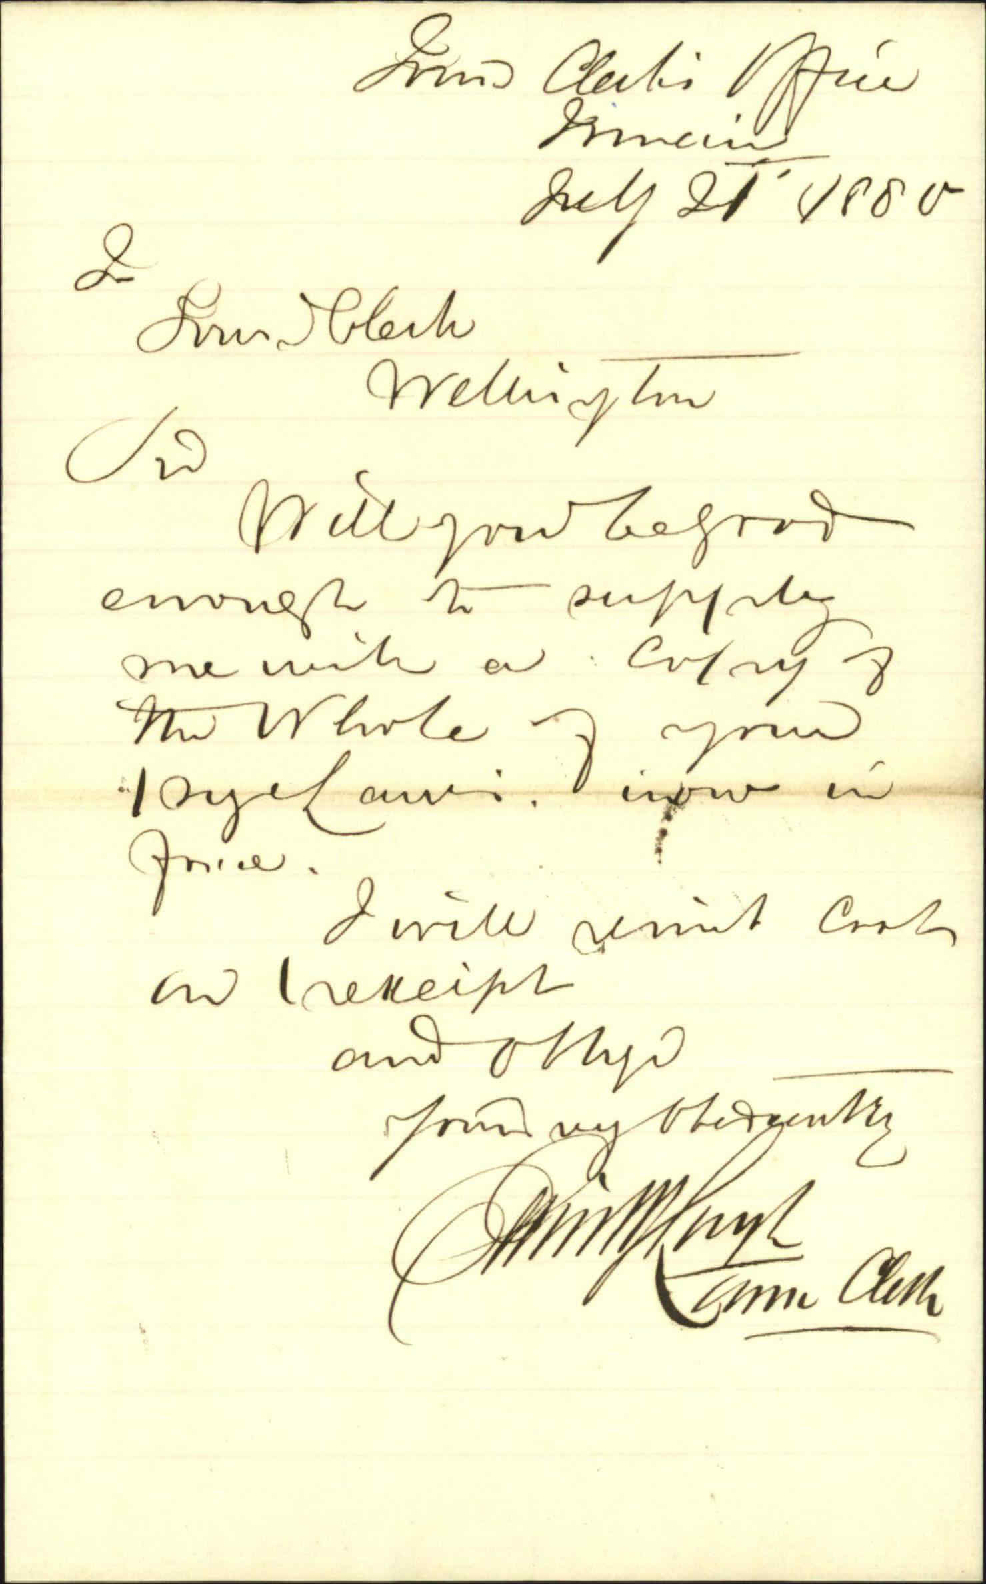 Town Clerk's Office
July 21st 1880
To
Town Clerk
Wellington
Sir
Will you be good
enough to supply
me with a copy of
the Whole of your
Bye Laws. now in
force.
I will remit cost
on receipt
and oblige
Yours very obediently
Town Clerk